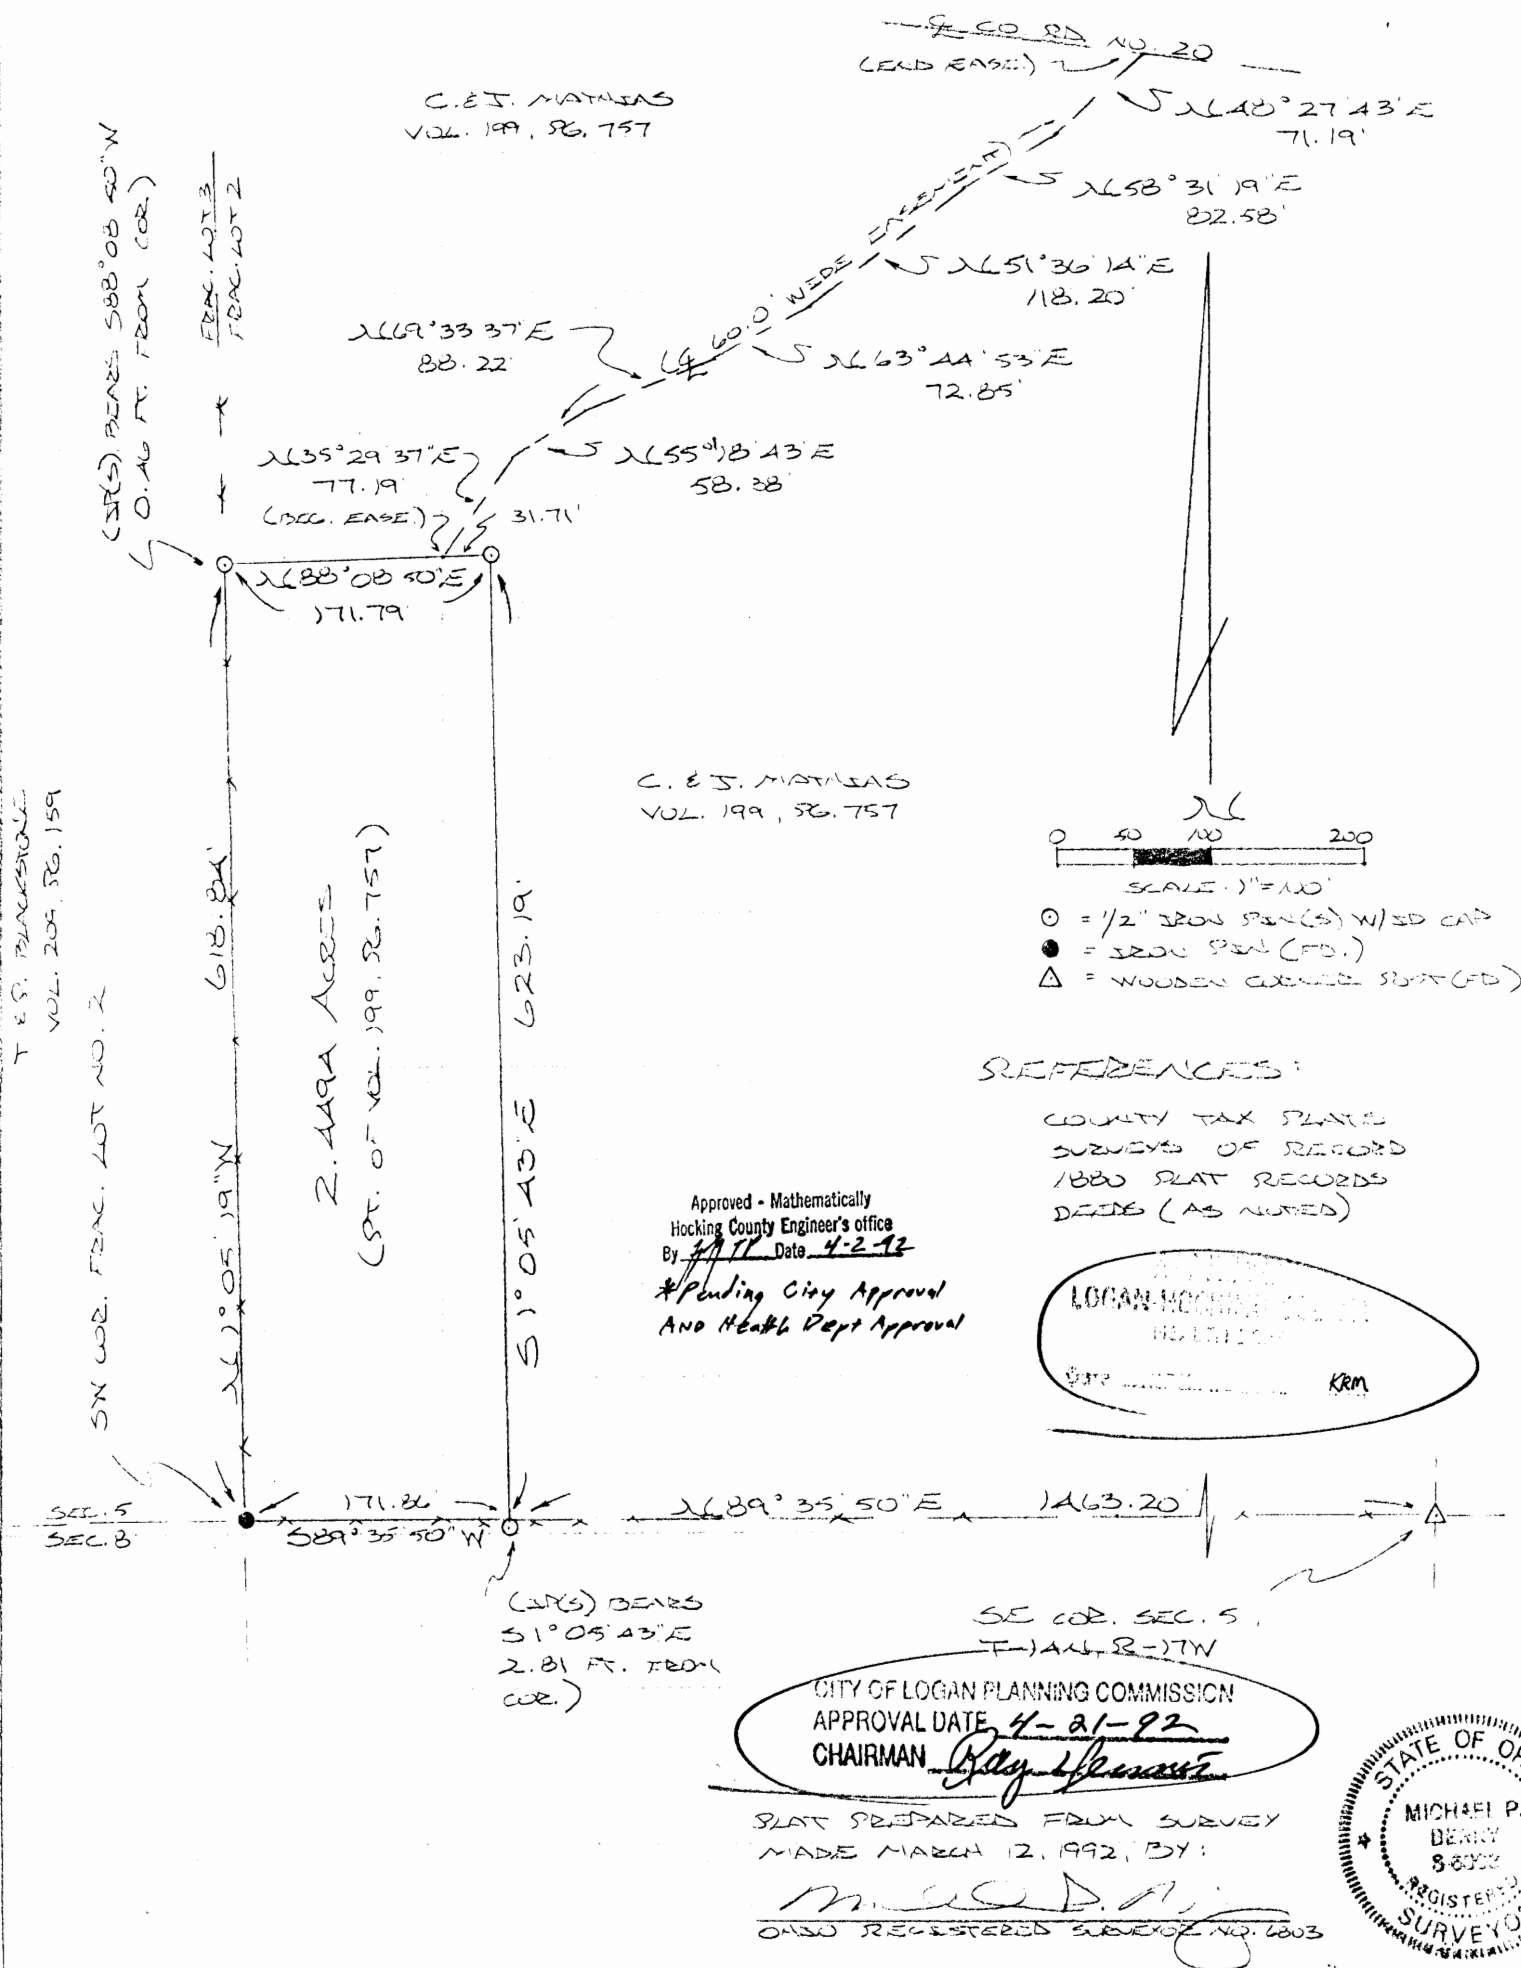 ℄ CO. RD. NO. 20
(END EASE.)
C. & J. MATHIAS
VOL. 199, PG. 757
N48°27'43"E
71.19'
N58°31'19"E
82.58'
N51°36'14"E
118.20'
(℄ 60.0' WIDE EASEMENT)
N63°44'53"E
72.85'
N69°33'37"E
88.22'
N55°18'43"E
58.38'
N35°29'37"E
77.19'
(BEG. EASE.)
31.71'
(IP(S) BEARS S88°08'50"W
0.46 FT. FROM COR.)
FRAC. LOT 3
FRAC. LOT 2
N88°08'50"E
171.79'
T & P. BLACKSTONE
VOL. 205, PG. 159
SW COR. FRAC. LOT NO. 2
N1°05'19"W 618.84'
2.449A ACRES
(PT. OF VOL. 199, PG. 757)
S1°05'43"E 623.19'
C. & J. MATHIAS
VOL. 199, PG. 757
N
0 50 100 200
SCALE: 1"=100'
⊙ = 1/2" IRON PIN(S) W/ID CAP
● = IRON PIN (FD.)
△ = WOODEN CORNER POST (FD)
REFERENCES:
COUNTY TAX PLATS
SURVEYS OF RECORD
1880 PLAT RECORDS
DEEDS (AS NOTED)
Approved - Mathematically
Hocking County Engineer's office
By Date 4-2-92
*Pending City Approval
AND Health Dept Approval
LOGAN-HOCKING
Date KRM
SEC. 5
SEC. 8
171.86'
S89°35'50"W
N89°35'50"E 1463.20'
(IP(S) BEARS
S1°05'43"E
2.81 FT. FROM
COR.)
SE COR. SEC. 5,
T-14N, R-17W
CITY OF LOGAN PLANNING COMMISSION
APPROVAL DATE 4-21-92
CHAIRMAN Ray
PLAT PREPARED FROM SURVEY
MADE MARCH 12, 1992, BY:
OHIO REGISTERED SURVEYOR NO. 6803
STATE OF OH
MICHAEL P.
BERRY
REGISTERED
SURVEYOR